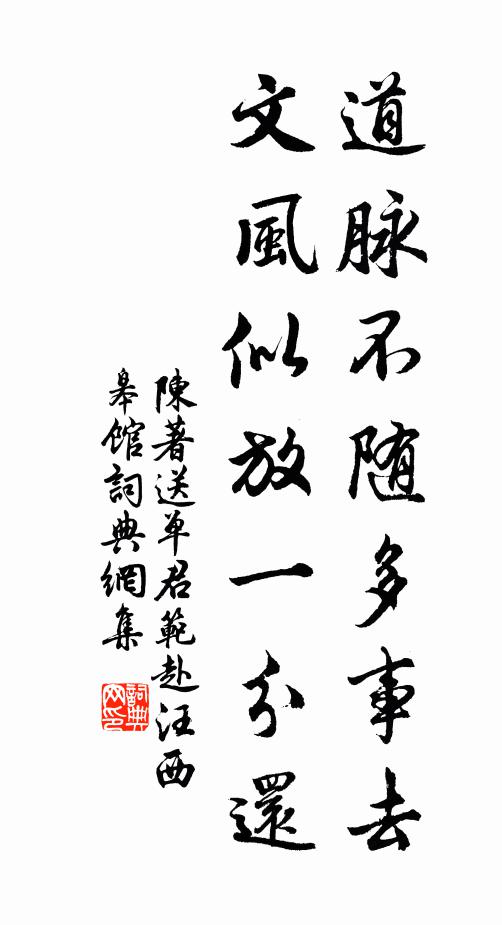 道脉不随多事去
文風似放一分還
陳著送单君範赴汪西
皋館詞典網集
詞典网印